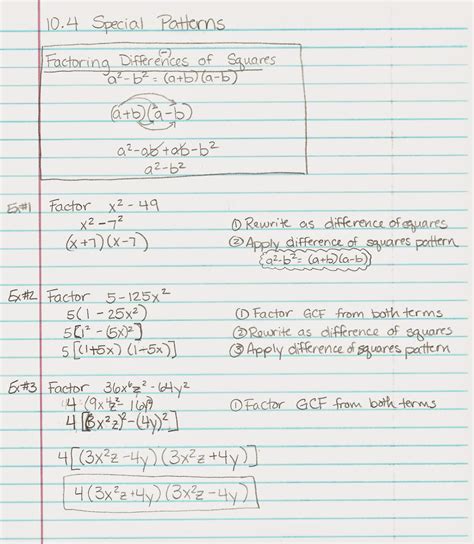 10.4 Special Patterns
(−)
Factoring Differences of Squares
a² - b² = (a+b)(a-b)
(a+b)(a-b)
a² - ab + ab - b²
a² - b²
Ex#1 Factor x² - 49
x² - 7²
① Rewrite as difference of squares
(x+7)(x-7)
② Apply difference of squares pattern
a²-b² = (a+b)(a-b)
Ex#2 Factor 5 - 125x²
5(1 - 25x²)
① Factor GCF from both terms
5[1² - (5x)²]
② Rewrite as difference of squares
5[(1+5x)(1-5x)]
③ Apply difference of squares pattern
Ex#3 Factor 36x⁴z² - 64y²
4(9x⁴z² - 16y²)
① Factor GCF from both terms
4[(3x²z)² - (4y)²]
4[(3x²z - 4y)(3x²z + 4y)]
4(3x²z + 4y)(3x²z - 4y)